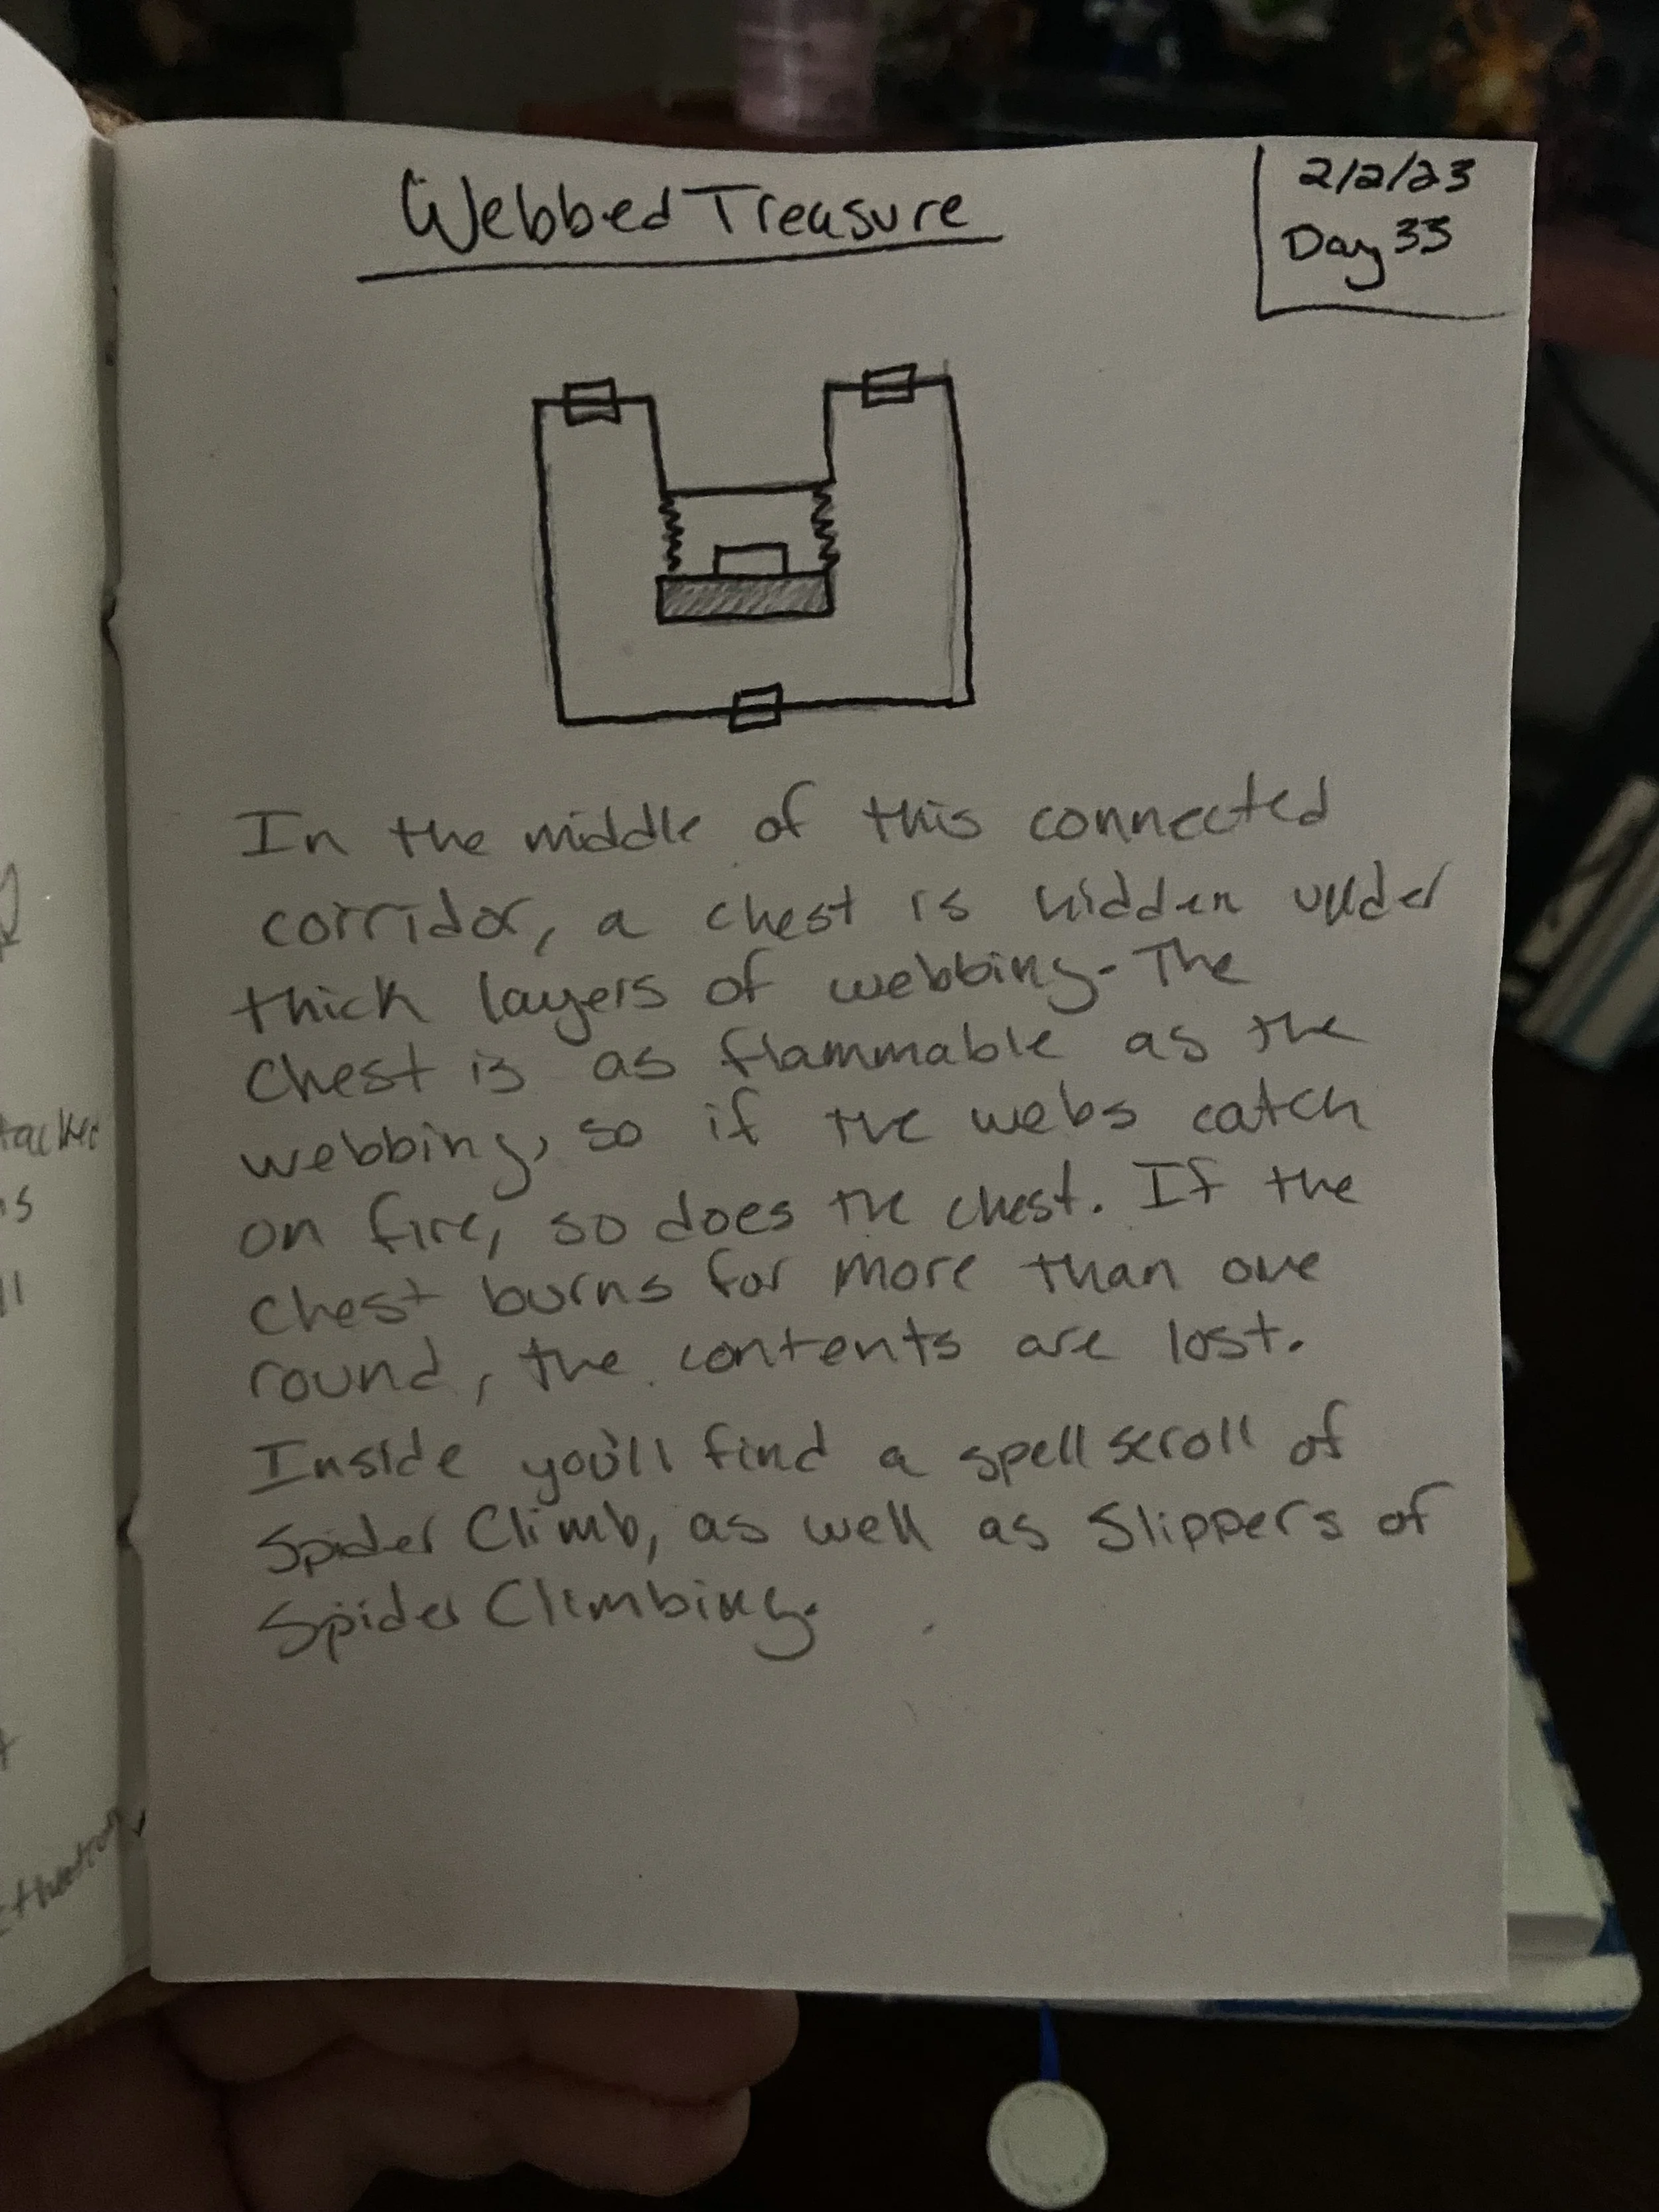 Webbed Treasure
2/2/23
Day 33
In the middle of this connected
corridor, a chest is hidden under
thick layers of webbing. The
chest is as flammable as the
webbing, so if the webs catch
on fire, so does the chest. If the
chest burns for more than one
round, the contents are lost.
Inside you'll find a spell scroll of
Spider Climb, as well as Slippers of
Spider Climbing.